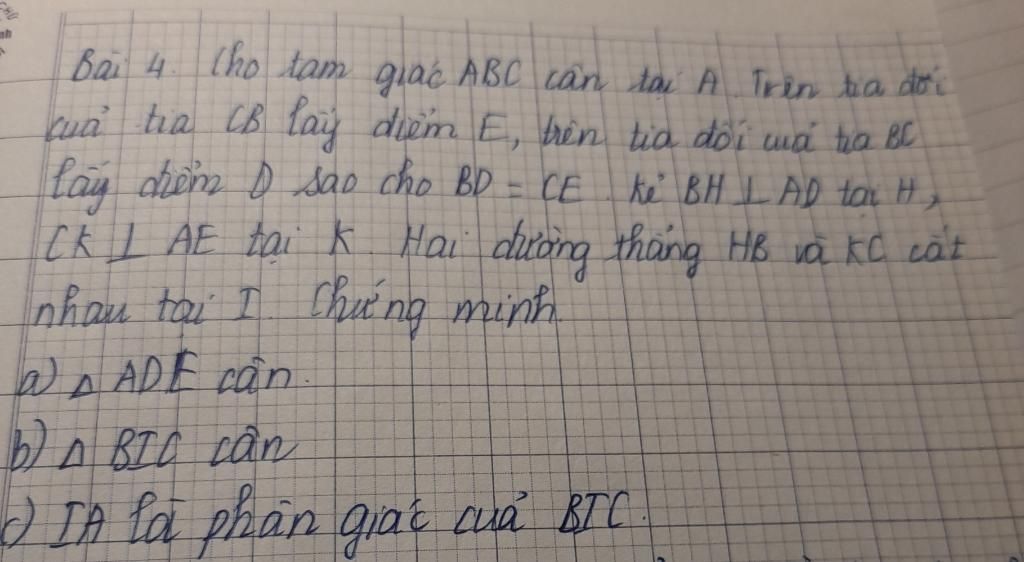 Bài 4. Cho tam giác ABC cân tại A. Trên tia đối
của tia CB lấy điểm E, trên tia đối của tia BC
lấy điểm D sao cho BD = CE. Kẻ BH ⊥ AD tại H,
CK ⊥ AE tại K. Hai đường thẳng HB và KC cắt
nhau tại I. Chứng minh
a) Δ ADE cân.
b) Δ BIC cân
c) IA là phân giác của BIC.